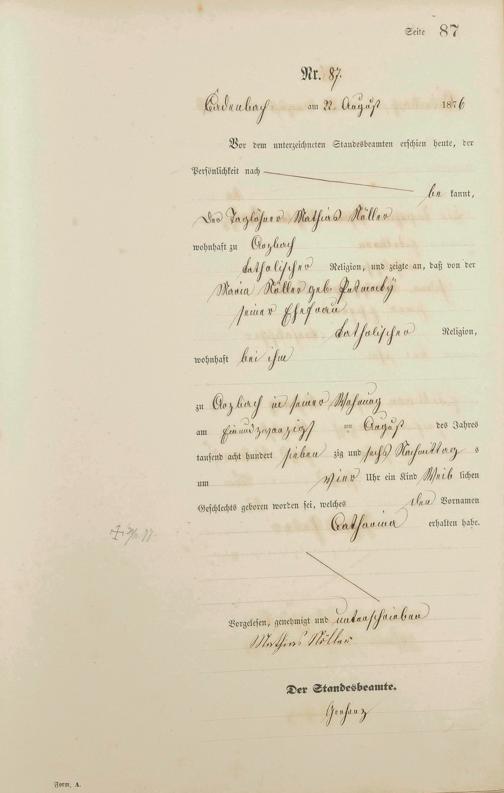 Seite 87
Nr. 87.
Cadenbach am 22 August 1876
Vor dem unterzeichneten Standesbeamten erschien heute, der
Persönlichkeit nach
be kannt,
der Taglöhner Mathias Nöller
wohnhaft zu Arzbach
katholischer Religion, und zeigte an, daß von der
Maria Nöller geb.
seiner Ehefrau
katholischer Religion,
wohnhaft bei ihm
zu Arzbach in seiner Wohnung
am einundzwanzigst en August des Jahres
tausend acht hundert sieben zig und sechs Nachmittag s
um vier Uhr ein Kind Weib lichen
Geschlechts geboren worden sei, welches den Vornamen
Catharina erhalten habe.
Vorgelesen, genehmigt und unterschrieben
Mathias Nöller
Der Standesbeamte.
Form. A.